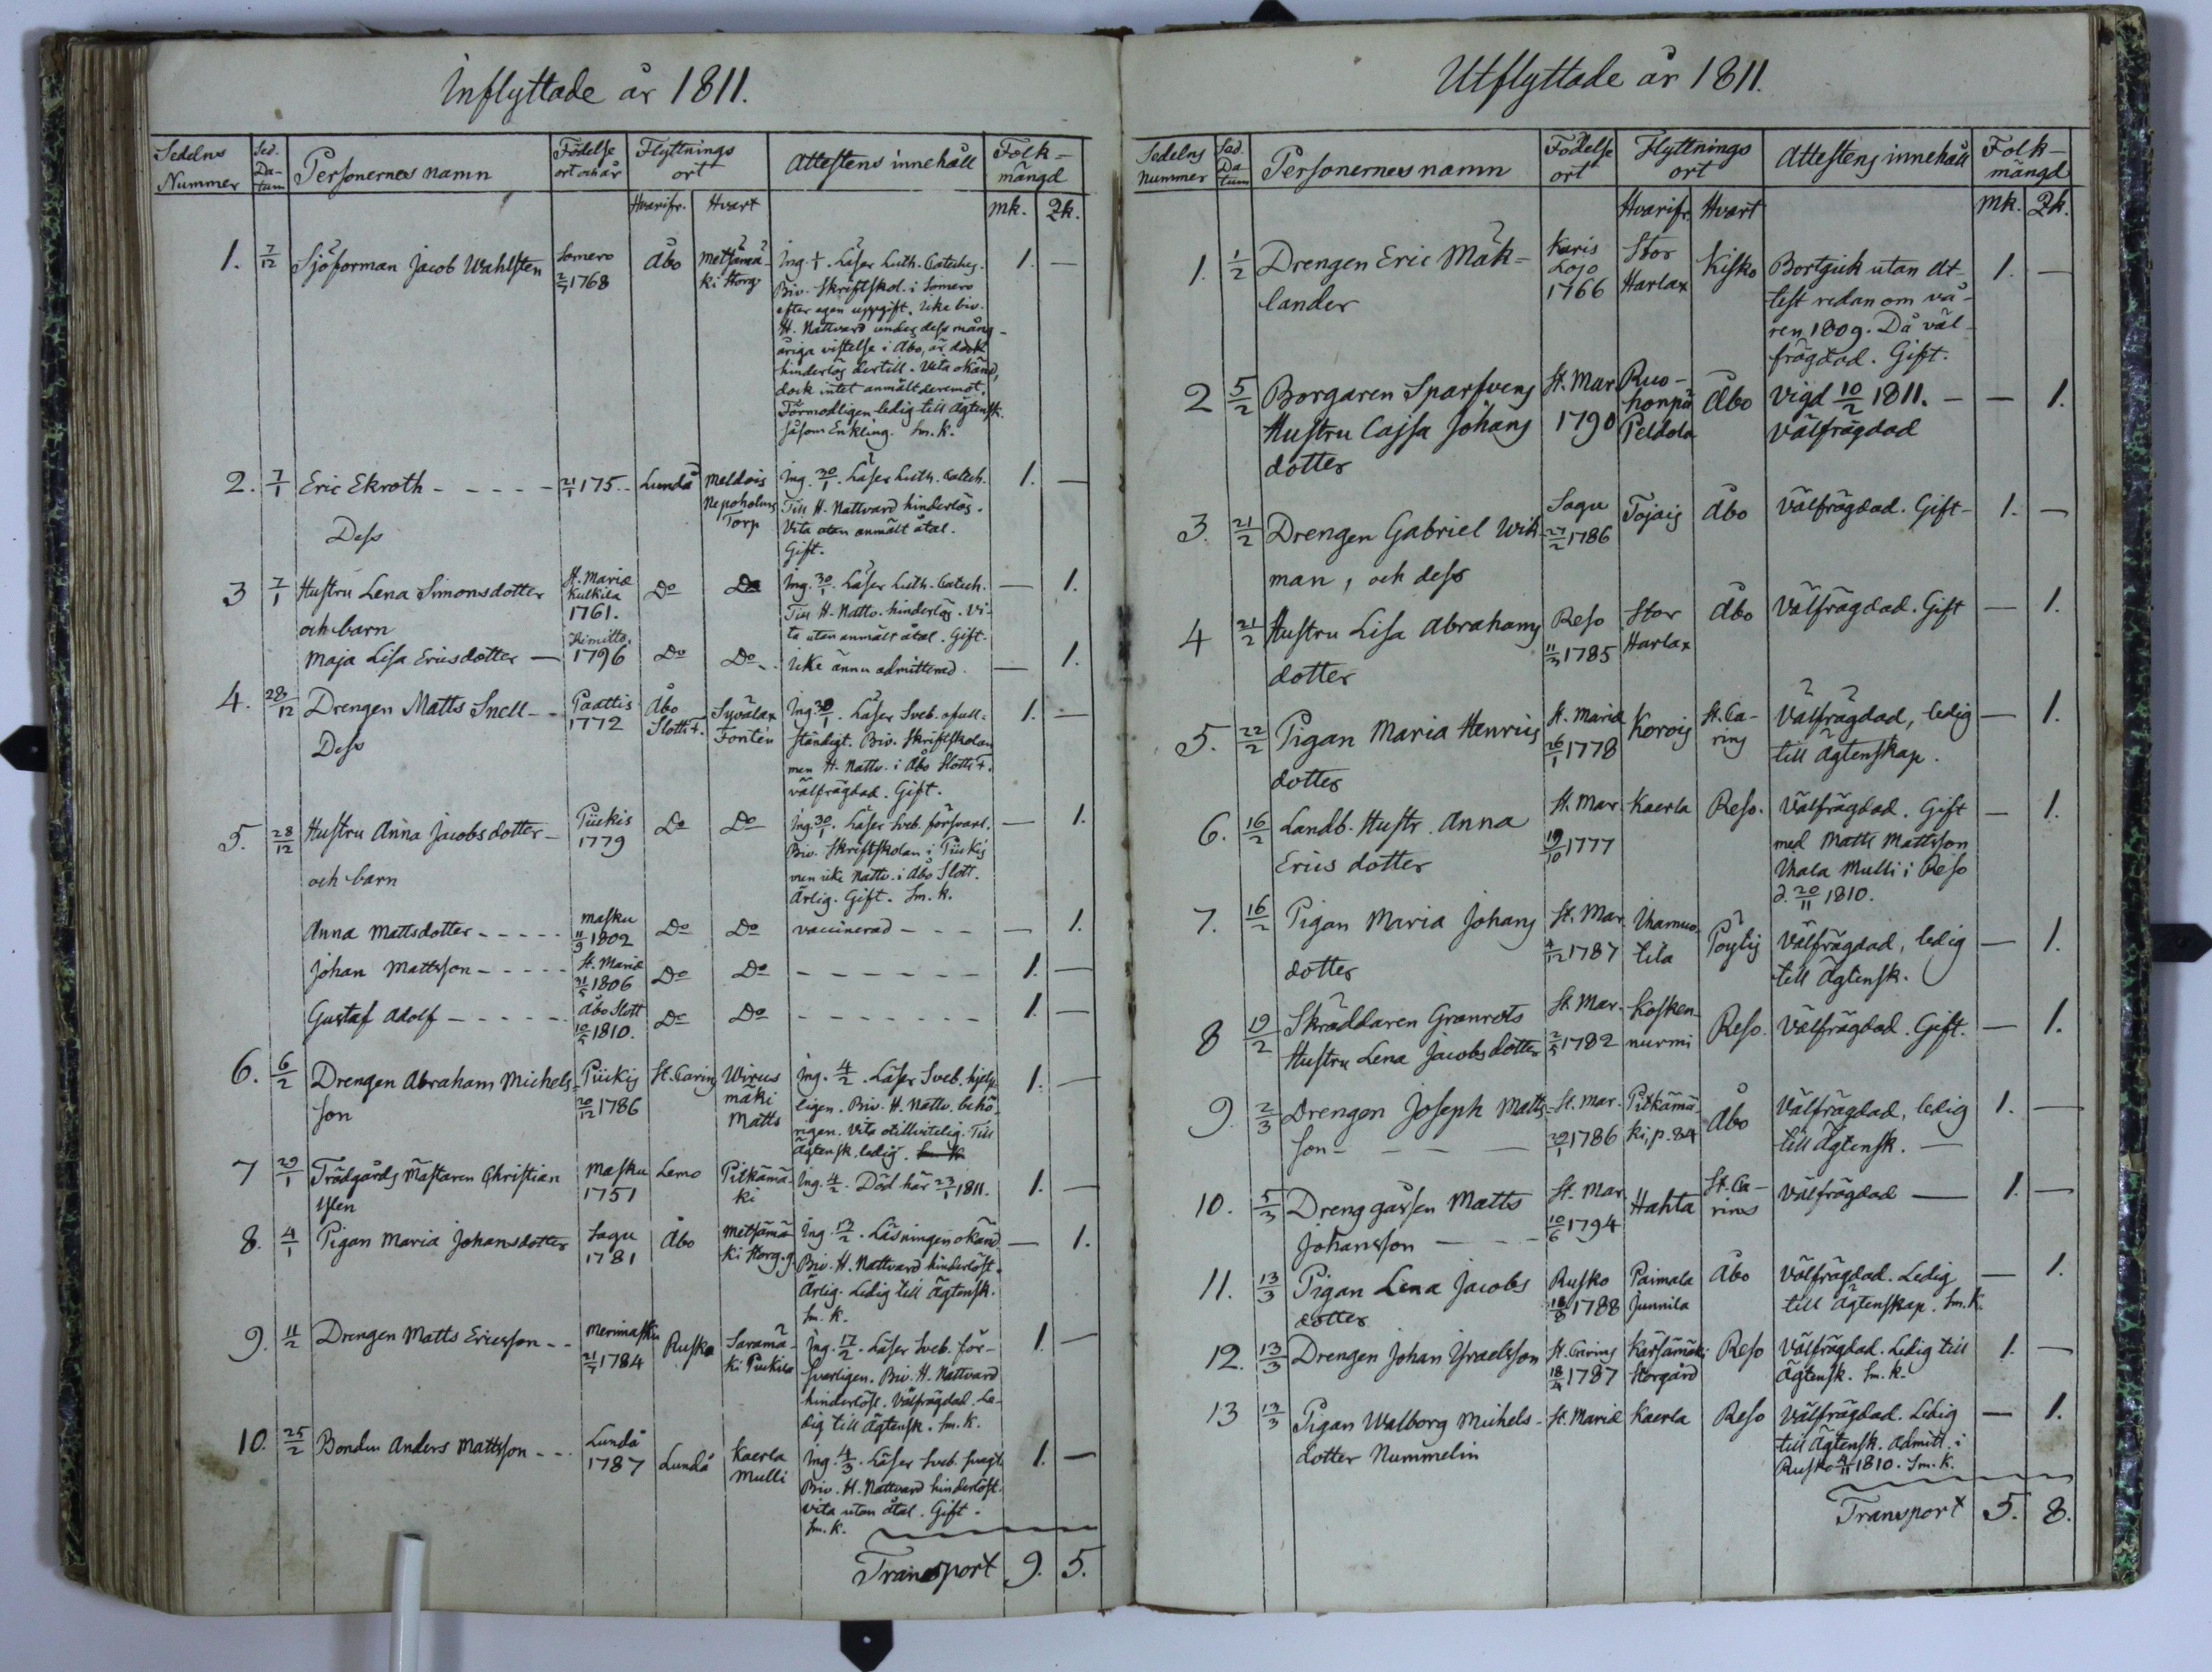 Inflyttade år 1811.
Sedelns Nummer | Sed. Datum | Personernes namn | Födelse ort och år | Flyttnings ort | Attestens innehåll | Folkmängd
Hvarifr. | Hvart | mk. | Qk.
1. 7/12 Sjöforman Jacob Wahlsten | Somero 2/7 1768 | Åbo | Metsämä-
ki Storg. | Ing. 1/1. Läser Luth. Cateches.
Biv. Skriftskol. i Somero
efter egen uppgift. Icke biv.
H. Nattvard under dess mång-
åriga vistelse i Åbo, är dock
hinderlös dertill. Vita okänd,
dock intet anmält deremot.
Förmodligen ledig till Ägtensk.
såsom Enkling. Sm. K. | 1. | —
2. 7/1 Eric Ekroth - - - - | 21/1 175.. | Lundå | Meldois
Nepoholms
Torp | Ing. 30/1. Läser Luth. Catech.
Till H. Nattvard hinderlös.
Vita utan anmält åtal.
Gift. | 1. | —
Dess
3 7/1 Hustru Lena Simonsdotter | St. Mariæ
Kulkila
1761. | Do | Do | Ing. 30/1. Läser Luth. Catech.
Till H. Nattv. hinderlös. Vi-
ta utan anmält åtal. Gift. | — | 1.
och barn
Maja Lisa Ericsdotter — | Kimitto.
1796 | Do | Do | icke ännu admitterad. | — | 1.
4. 28/12 Drengen Matts Snell - - | Paattis
1772 | Åbo
Slotts F. | Syvälax
Fontén | Ing. 30/1. Läser Sveb. ofull-
ständigt. Biv. Skriftskolan
men H. Nattv. i Åbo Slotts F.
välfrägdad. Gift. | 1. | —
Dess
5. 28/12 Hustru Anna Jacobsdotter - | Piikis
1779 | Do | Do | Ing. 30/1. Läser Sveb. försvarl.
Biv. Skriftskolan i Piikis
men icke Nattv. i Åbo Slott.
Ärlig. Gift. Sm. K. | — | 1.
och barn
Anna Mattsdotter - - - - | Masku
11/9 1802 | Do | Do | vaccinerad - - - | — | 1.
Johan Mattsson - - - - | St. Mariæ
31/5 1806 | Do | Do | - - - - - - | 1. | —
Gustaf Adolf - - - - - | Åbo Slott
10/5 1810. | Do | Do | - - - - - - | 1. | —
6. 6/2 Drengen Abraham Michels-
son | Piikis
20/12 1786 | St. Carins | Wirus
mäki
Matts | Ing. 4/2. Läser Sveb. hjelp-
ligen. Biv. H. Nattv. behö-
rigen. Vita otillvitelig. Till
Ägtensk. ledig. Sm. K. | 1. | —
7 29/1 Trädgårds Mästaren Christian
Ylen | Masku
1751 | Lemo | Pitkämä-
ki | Ing. 4/2. Död här 23/1 1811. | 1. | —
8. 4/1 Pigan Maria Johansdotter | Sagu
1781 | Åbo | Metsämä-
ki Storg. g. | Ing. 17/2. Läsningen okänd.
Biv. H. Nattvard hinderlöst.
Ärlig. Ledig till Ägtensk.
Sm. K. | — | 1.
9. 11/2 Drengen Matts Ericsson - - | Merimasku
21/7 1784 | Rusko | Saramä-
ki Puckila | Ing. 17/2. Läser Sveb. för-
svarligen. Biv. H. Nattvard
hinderlöst. Välfrägdad. Le-
dig till Ägtensk. Sm. K. | 1. | —
10. 25/2 Bonden Anders Mattsson - - - | Lundå
1787 | Lundå | Kaerla
Mulli | Ing. 4/3. Läser Sveb. svagt.
Biv. H. Nattvard hinderlöst.
Vita utan åtal. Gift.
Sm. K. | 1. | —
Transport | 9. | 5.
Utflyttade år 1811.
Sedelns nummer | Sed. Datum | Personernes namn | Födelse ort | Flyttnings ort | Attestens innehåll | Folkmängd
Hvarifr. | Hvart | mk. | Qk.
1. 1/2 Drengen Eric Mäk-
lander | Karis
Lojo
1766 | Stor
Harlax | Kisko | Bortgick utan At-
test redan om vå-
ren 1809. Då väl-
frägdad. Gift. | 1. | —
2 5/2 Borgaren Sparfvens
Hustru Cajsa Johans
dotter | St. Mar.
1790 | Ruo-
honpä
Peldola | Åbo | Vigd 10/2 1811. -
välfrägdad | — | 1.
3. 21/2 Drengen Gabriel Wik-
man, och dess | Sagu
27/2 1786 | Tojais | Åbo | välfrägdad. Gift - | 1. | —
4 21/2 Hustru Lisa Abrahams
dotter | Reso
11/3 1785 | Stor
Harlax | Åbo | välfrägdad. Gift | — | 1.
5. 22/2 Pigan Maria Henrics
dotter | St. Mariæ
26/1 1778 | Korois | St. Ca-
rins | välfrägdad, ledig
till Ägtenskap. | — | 1.
6. 16/2 Landb. Hustr. Anna
Erics dotter | St. Mar
19/10 1777 | Kaerla | Reso. | välfrägdad. Gift
med Matts Mattsson
Ihala Mulli i Reso
d. 20/11 1810. | — | 1.
7. 16/2 Pigan Maria Johans
dotter | St. Mar.
4/12 1787 | Ihamuo-
tila | Pöytis | välfrägdad, ledig
till Ägtensk. | — | 1.
8 19/2 Skräddaren Granrots
Hustru Lena Jacobsdotter | St. Mar.
2/5 1782 | Kosken-
nurmi | Reso. | välfrägdad. Gift. | — | 1.
9. 2/3 Drengen Joseph Matts-
son - - - - | St. Mar.
29/1 1786 | Pitkämä-
ki, p. 84 | Åbo | välfrägdad, ledig
till Ägtensk. — | 1. | —
10. 5/3 Dreng gåssen Matts
Johansson — - - | St. Mar.
10/6 1794 | Hahta | St. Ca-
rins | välfrägdad — | 1. | —
11. 13/3 Pigan Lena Jacobs
dotter | Rusko
18/8 1788 | Paimala
Junnila | Åbo | välfrägdad. Ledig
till Ägtenskap. Sm. K. | — | 1.
12. 13/3 Drengen Johan Israelsson | St. Carins
18/4 1787 | Kärsämäki
Storgård | Reso | Välfrägdad. Ledig till
Ägtensk. Sm. K. | 1. | —
13 13/3 Pigan Walborg Michels-
dotter Nummelin | St. Mariæ | Kaerla | Reso | Välfrägdad. Ledig
till Ägtensk. Admitt. i
Rusko 4/11 1810. Sm. K. | — | 1.
Transport | 5. | 8.